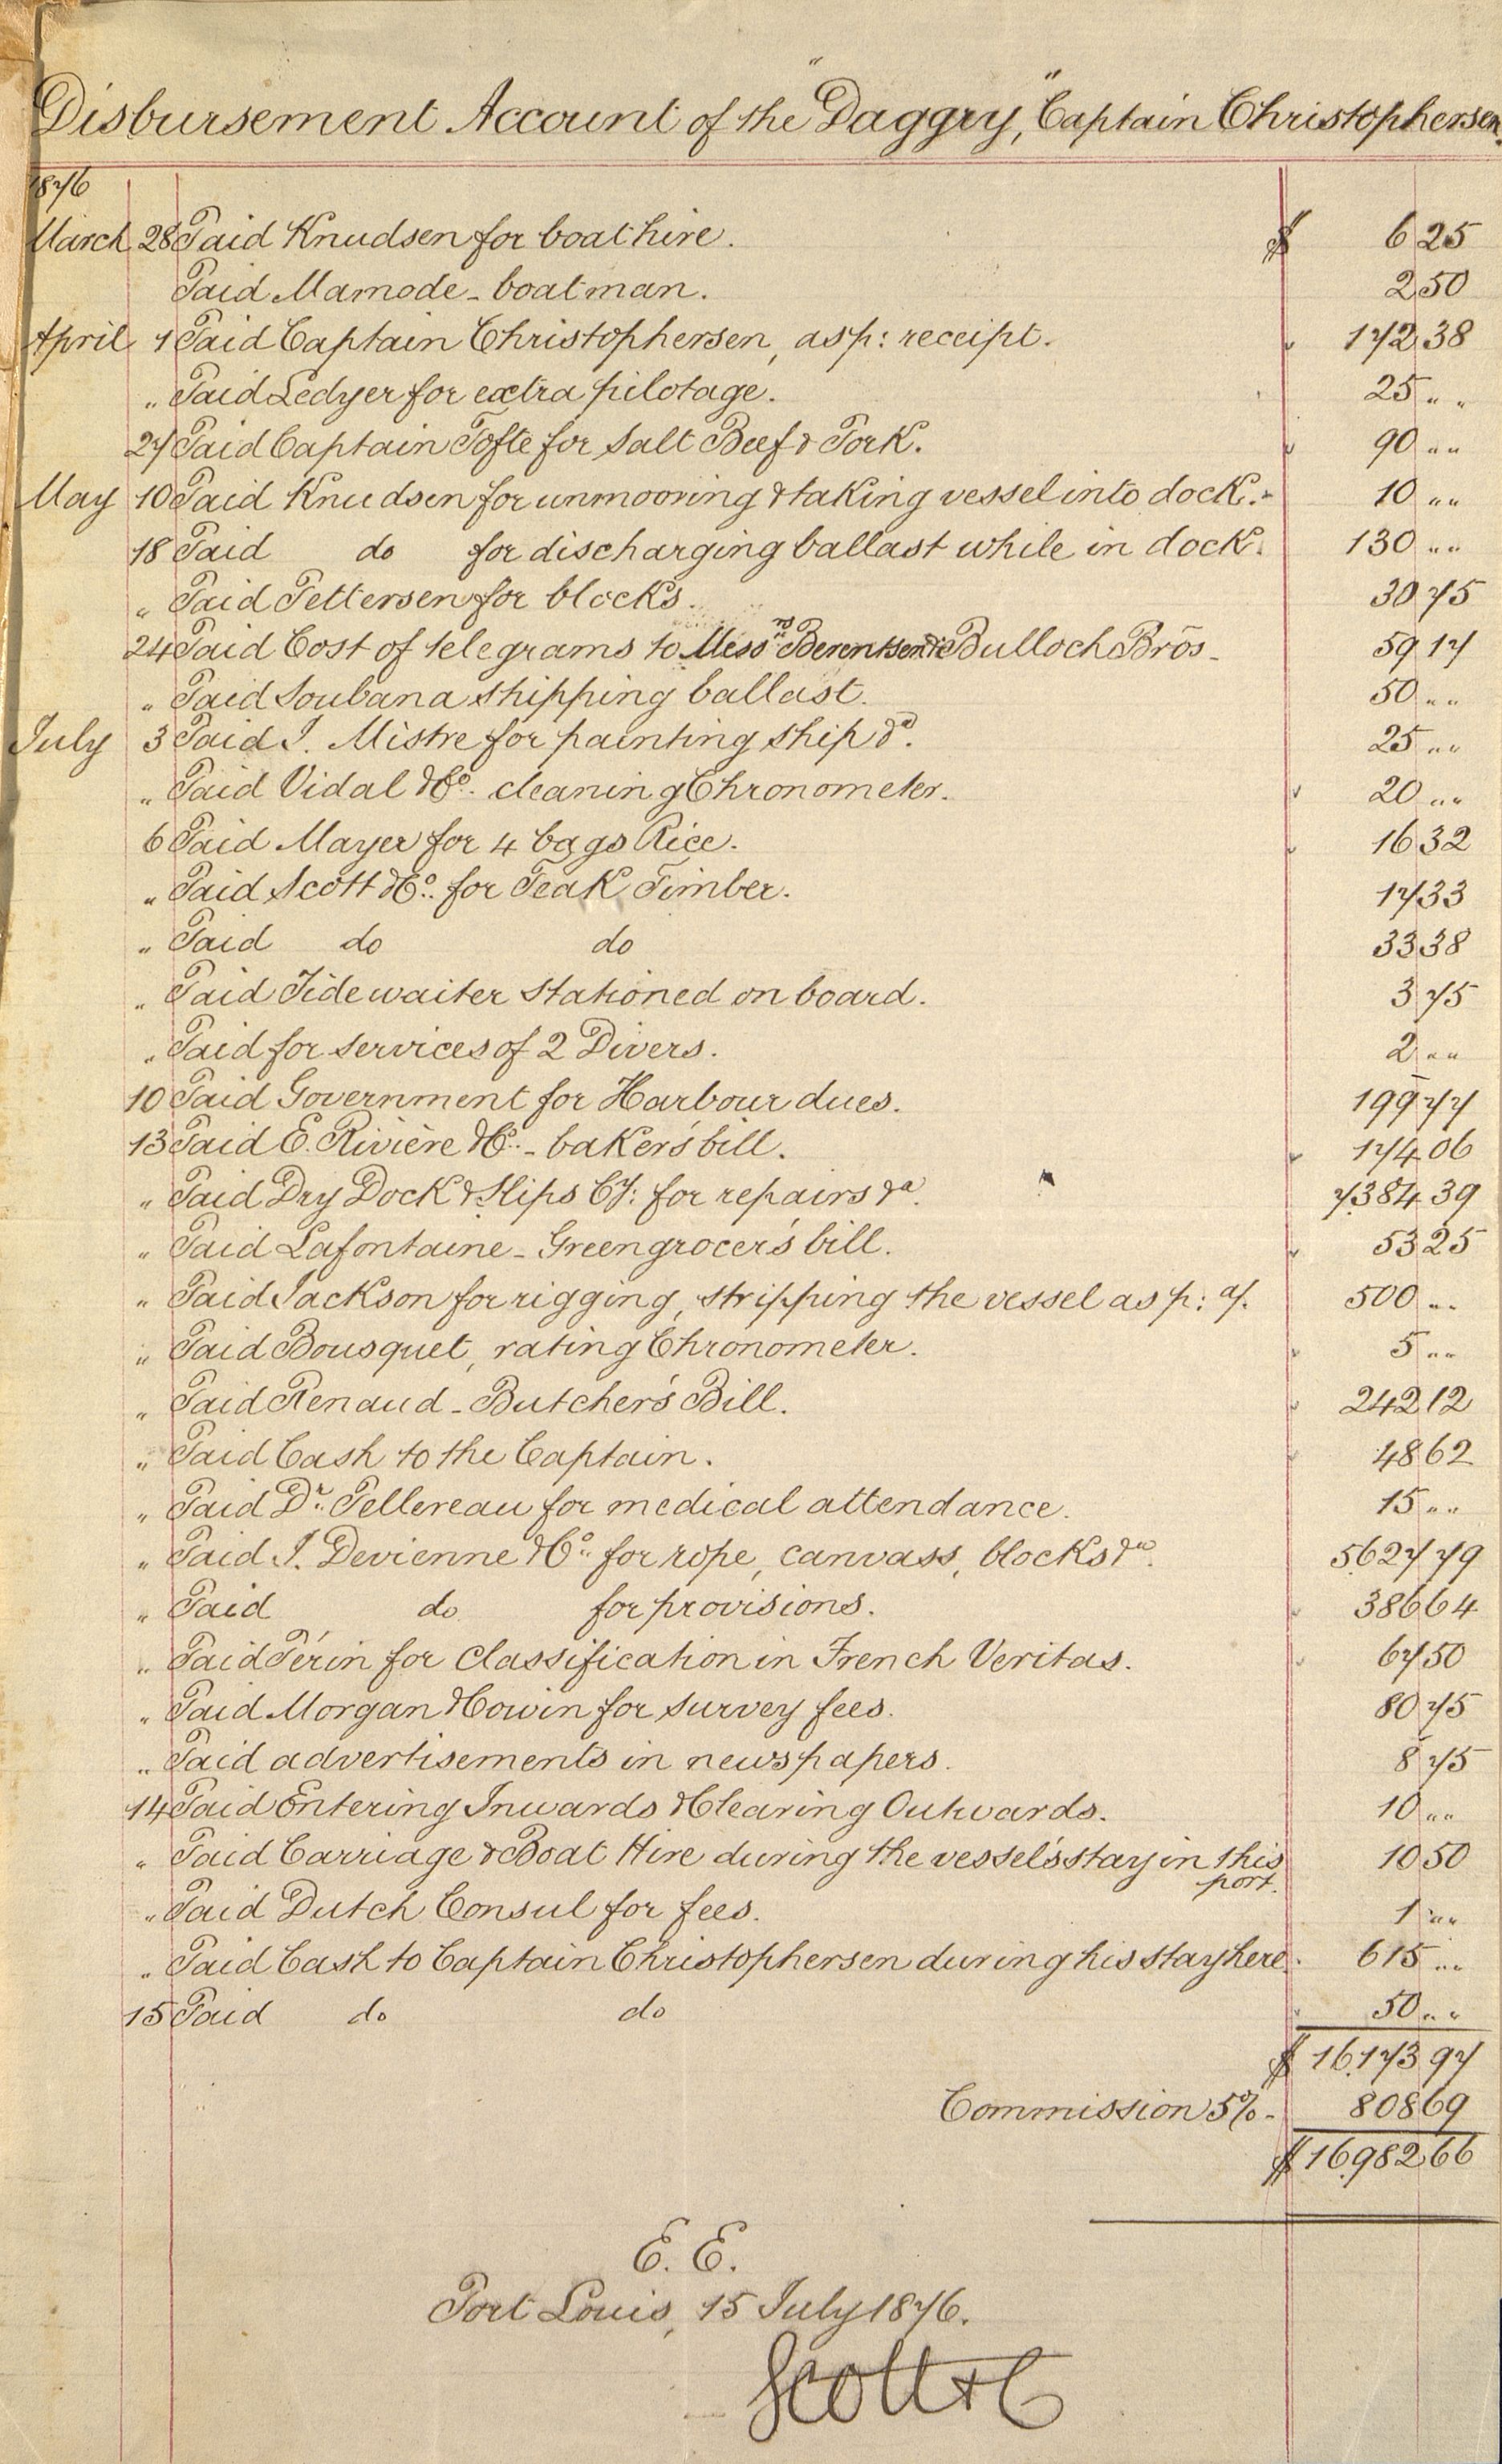 Disbursement Account of the "Daggry," Captain Christophersen.
1876
March 28 Paid Knudsen for boat hire. $ 6 25
Paid Mamode - boatman. 2 50
April 1 Paid Captain Christophersen, as p: receipt. 172 38
" Paid Ledyer for extra pilotage. 25 " "
27 Paid Captain Tofte for Salt Beef & Pork. 90 " "
May 10 Paid Knudsen for unmooring & taking vessel into dock. - 10 " "
18 Paid do for discharging ballast while in dock. 130 " "
" Paid Pettersen for blocks. 30 75
24 Paid Cost of telegrams to Messrs Berentsen & Bulloch Bros - 59 17
" Paid Soubana shipping ballast. 50 " "
July 3 Paid J. Mistre for painting ship &a. 25 " "
" Paid Vidal & Co. cleaning Chronometer. 20 " "
6 Paid Mayer for 4 bags Rice. 16 32
" Paid Scott & Co. for Teak Timber. 17 33
" Paid do do 33 38
" Paid Tide waiter stationed on board. 3 75
" Paid for services of 2 Divers. 2 " "
10 Paid Government for Harbour dues. 199 77
13 Paid E. Rivière & Co. - baker's bill. 174 06
" Paid Dry Dock & Slips Cy: for repairs &a. 7,384 39
" Paid Lafontaine - Greengrocer's bill. 53 25
" Paid Jackson for rigging, stripping the vessel as p: a/. 500 " "
" Paid Bousquet, rating Chronometer. 5 " "
" Paid Renaud - Butcher's Bill. 242 12
" Paid Cash to the Captain. 48 62
" Paid Dr. Pellereau for medical attendance. 15 " "
" Paid J. Devienne & Co. for rope, canvass, blocks &a. 5,627 79
" Paid do for provisions. 386 64
" Paid Périn for Classification in French Veritas. 67 50
" Paid Morgan & Cowin for survey fees. 80 75
" Paid advertisements in newspapers. 8 75
14 Paid Entering Inwards & Clearing Outwards. 10 " "
" Paid Carriage & Boat Hire during the vessel's stay in this 10 50
port.
" Paid Dutch Consul for fees. 1 " "
" Paid Cash to Captain Christophersen during his stay here. 615 " "
15 Paid do do 50 " "
$ 16,173 97
Commission 5% - 808 69
$ 16,982 66
E. E.
Port Louis, 15 July 1876.
Scott & C